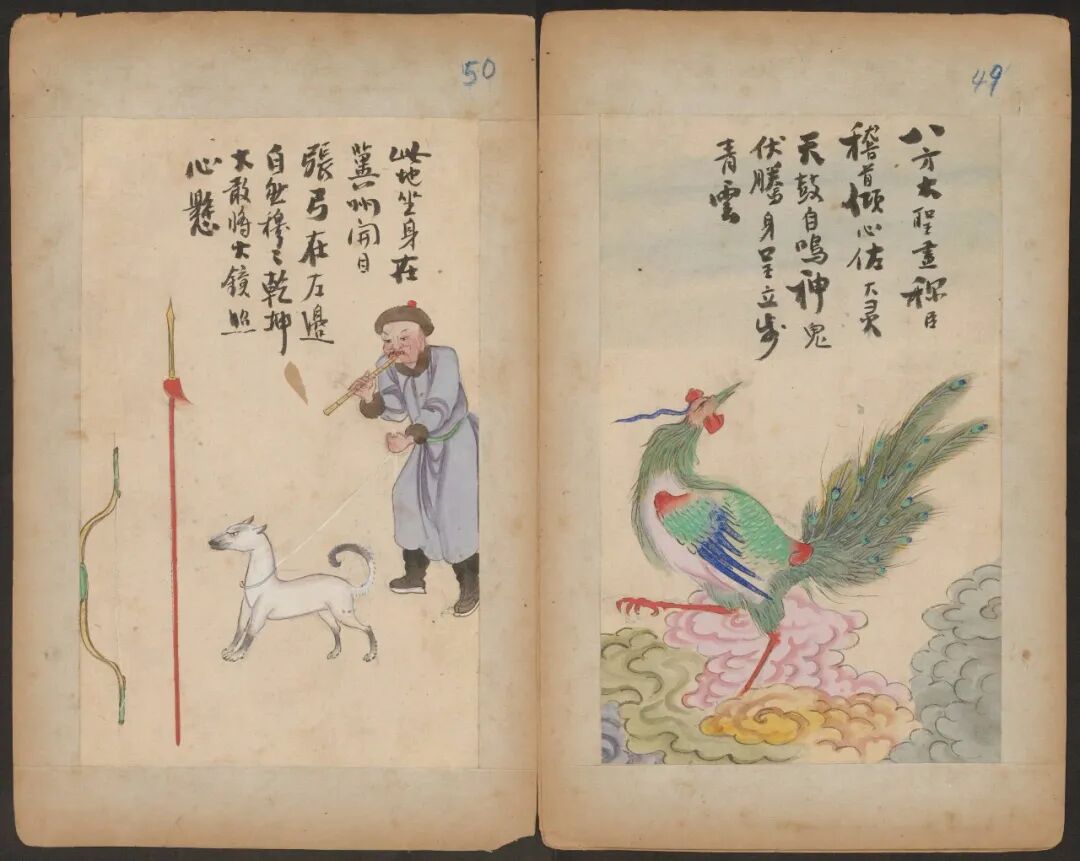 49
八方大聖盡稱臣
稽首傾心佐大灵
天鼓自鳴神鬼
伏騰身立步
青雲
50
此地坐身在
冀州開目
張弓在左邊
自然穆〻乾坤
大敢將大鏡照
心懸